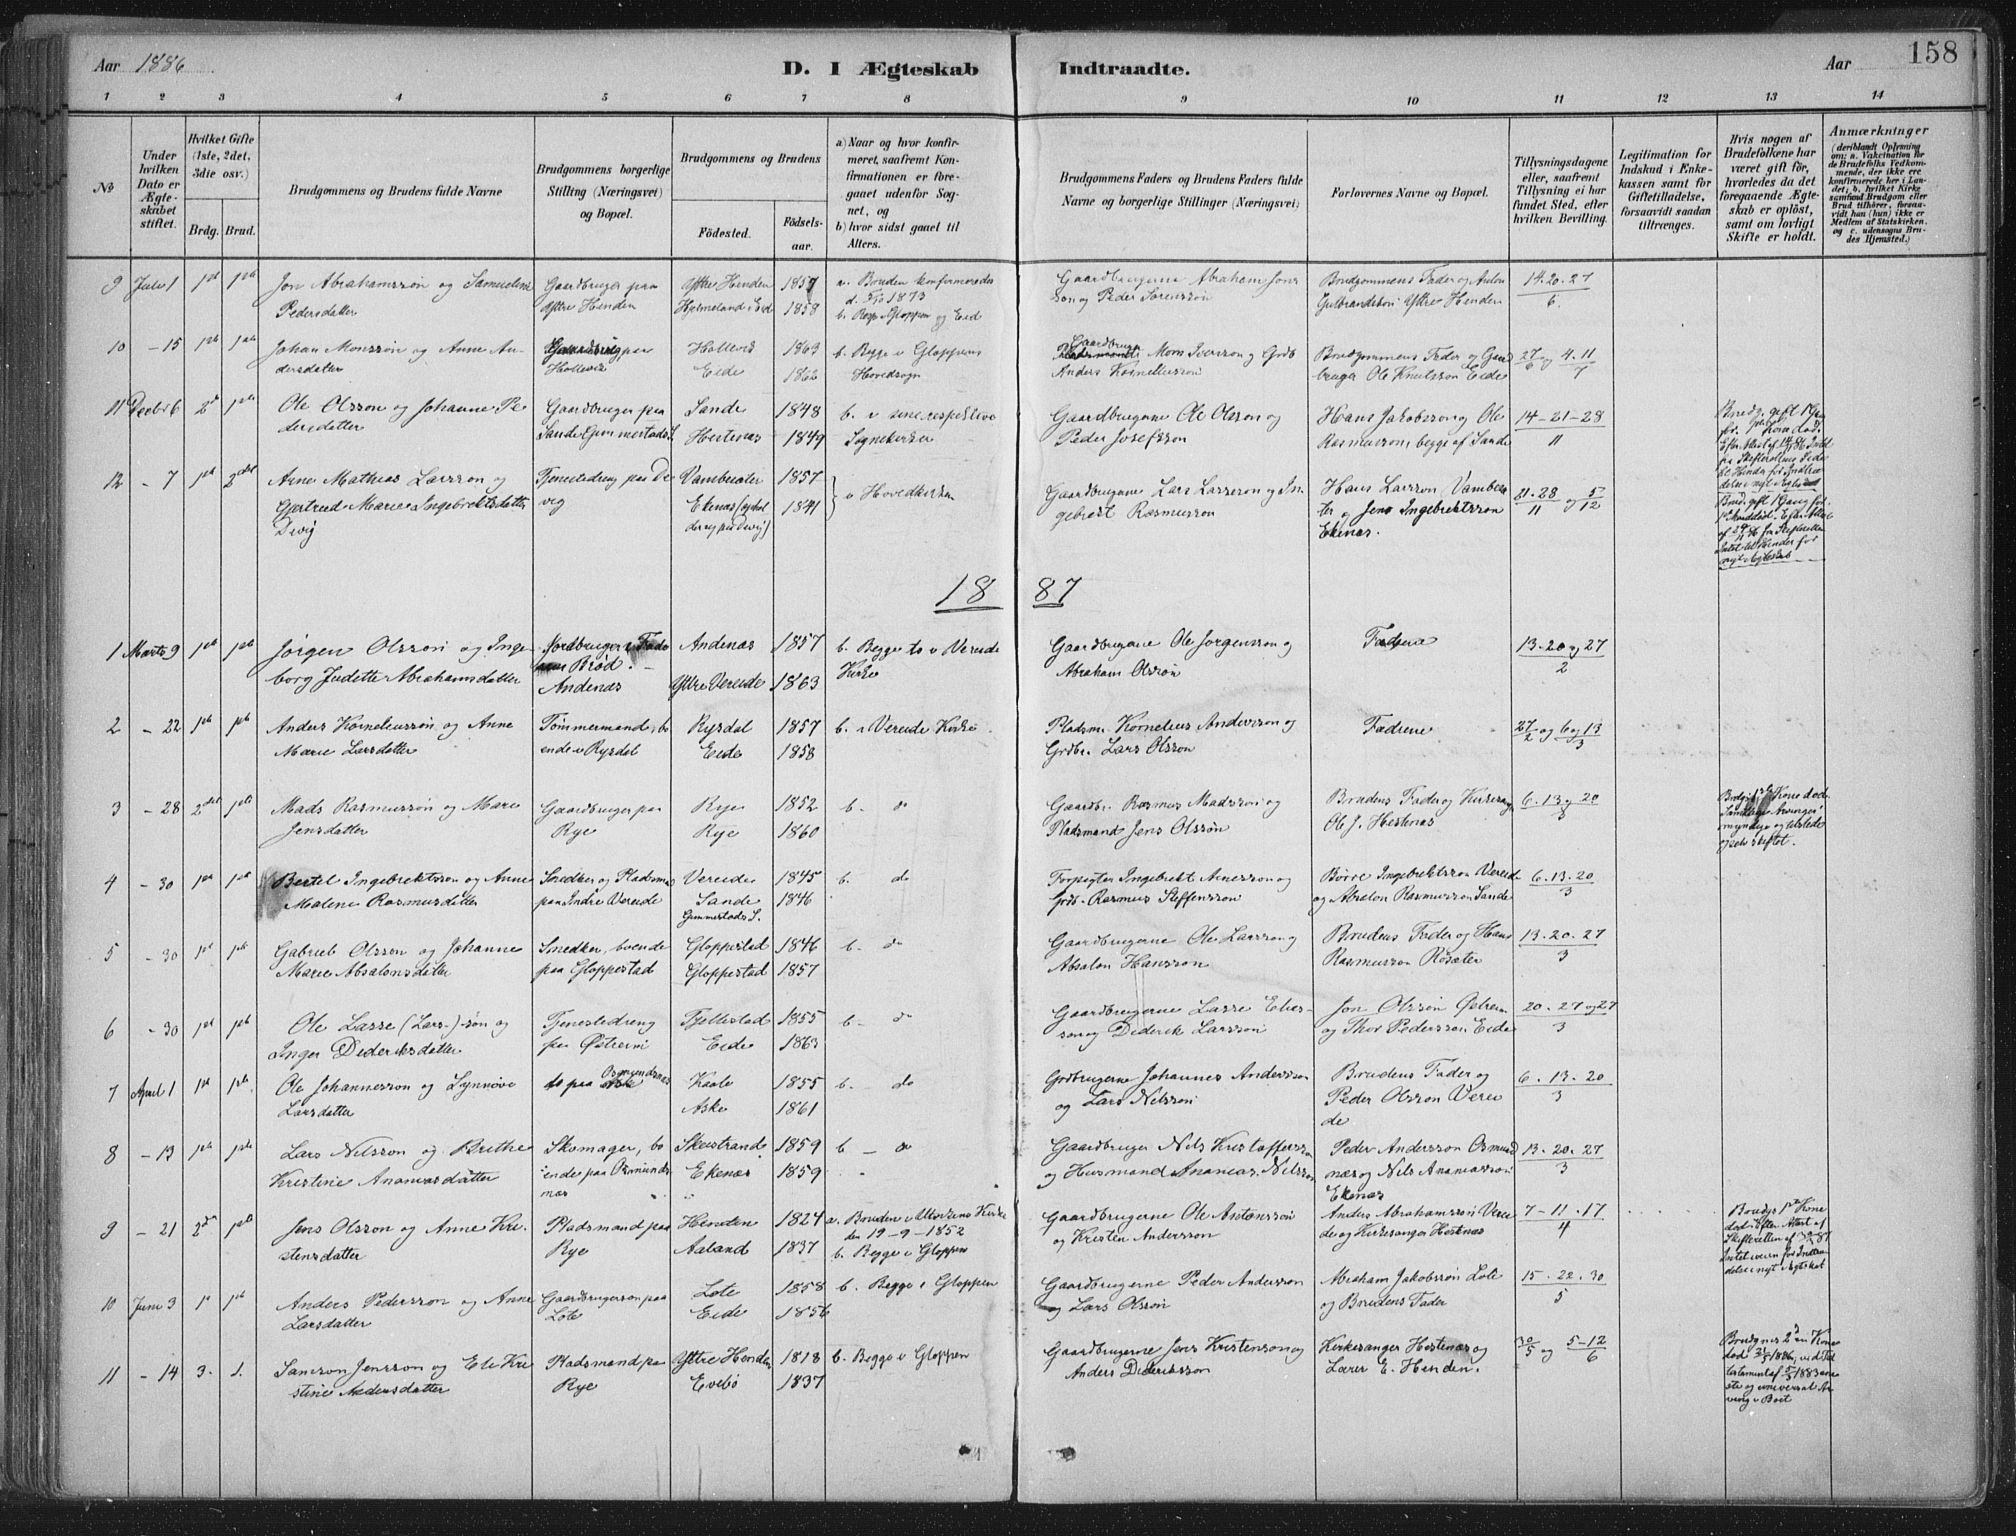 158
Aar 1886
D. I Ægteskab Indtraadte.
Aar
1 2 3 4 5 6 7 8 9 10 11 12 13 14
No
Under hvilken Dato er Ægteskabet stiftet.
Hvilket Gifte (1ste, 2det, 3die osv.)
Brdg. Brud.
Brudgommens og Brudens fulde Navne
Brudgommens borgerlige Stilling (Næringsvei) og Bopæl.
Brudgommens og Brudens
Fødested. Fødselsaar.
a) Naar og hvor konfirmeret, saafremt Konfirmationen er foregaaet udenfor Sognet, og
b) hvor sidst gaaet til Alters.
Brudgommens Faders og Brudens Faders fulde Navne og borgerlige Stillinger (Næringsvei)
Forlovernes Navne og Bopæl.
Tillysningsdagene eller, saafremt Tillysning ei har fundet Sted, efter hvilken Bevilling.
Legitimation for Indskud i Enkekassen samt for Giftetilladelse, forsaavidt saadan tiltrænges.
Hvis nogen af Brudefolkene har været gift før, hvorledes da det foregaaende Ægteskab er opløst, samt om lovligt Skifte er holdt.
Anmærkninger (deriblandt Oplysning om: a. Vakcination for de Brudefolks Vedkommende, der ikke ere konfirmerede her i Landet; b. hvilket Kirkesamfund Brudgom eller Brud tilhører, forsaavidt han (hun) ikke er Medlem af Statskirken, og c. udensogns Brudes Hjemsted.)
9 Juli 1 1ste 1ste Jon Abrahamssøn og Samueline Pedersdatter Gaardbruger paa Yttre Henden Yttre Henden 1857 Hjelmeland i Eid 1858 a. Bruden konfirmeredes 1873 b. Begge i Gloppen og Eid Gaardbrugerne Abraham Jonssøn og Peder Sørenssøn Brudgommens Fader og Anton Gulbrandssøn Yttre Henden 14.20.27/6
10 - 15 1ste 1ste Johan Monssøn og Anne Andersdatter paa Hollevik Hollevik 1863 Eide 1862 b. Begge i Gloppens Hovedsogn Gaardbruger Mons Iverssøn og Grdb. Anders Korneliussøn Brudgommens Fader og Gaardbruger Ole Knutssøn Eide 27/6 og 4.11/7
11 Decbr 6 2de 1ste Ole Olssøn og Johanne Pedersdatter Gaardbruger paa Sande Gimmestads S. Sande 1848 Hestenæs 1849 b. i sine respektive Sognekirker Gaardbrugerne Ole Olssøn og Peder Josefssøn Hans Jakobssøn og Ole Rasmussøn, begge af Sande 14-21-28/11
12 - 7 1ste 2det Arne Mathias Larssøn og Gjertrud Marie Ingebrektsdatter Devig Tjenestedreng paa Devig Vambesæter 1857 Ekenæs 1841 i Hovedkirken Gaardbrugerne Lars Larssøn og Ingebrigt Rasmussøn Hans Larssøn og Jens Ingebrektssøn Ekenæs. 21.28/11 og 5/12
1887
1 Marts 9 1ste 1ste Jørgen Olssøn og Ingeborg Judette Abrahamsdatter Jordbruger Brød. Andenæs Andenæs 1857 Yttre Vereide 1863 b. Begge to i Vereide Kirke Gaardbrugerne Ole Jørgenssøn og Abraham Olssøn Fædrene 13.20 og 27/2
2 - 22 1ste 1ste Anders Korneliussøn og Anne Marie Larsdatter Tømmermand, boende i Rysdal Rysdal 1857 Eide 1858 b. i Vereide Kirke. Pladsm. Kornelius Anderssøn og Grdbr. Lars Olssøn Fædrene 27/2 og 6 og 13/3
3 - 28 2det 1ste Mads Rasmussøn og Marie Jensdatter Gaardbruger paa Rye Rye 1852 Rye 1860 b. do Gaardbr. Rasmus Madssøn og Pladsmand Jens Olssøn Brudens Fader og Kirkesanger Ole J. Hestenæs 6.13 og 20/3
4 - 30 1ste 1ste Bertel Ingebrektssøn og Anne Malene Rasmusdatter Snedker og Pladsmand paa Indre Vereide Vereide 1845 Sande Gimmestads S. 1846 b. do Forpagter Ingebrekt Arnessøn og Grdb. Rasmus Steffenssøn Børre Ingebrektssøn Vereide og Absalon Rasmussøn Sande 6.13.20/3
5 - 30 1ste 1ste Gabriel Olssøn og Johanne Marie Absalonsdatter Snedker, boende paa Gloppestad Gloppestad 1846 Gloppestad 1857 b. do Gaardbrugerne Ole Larssøn og Absalon Hanssøn Brudens Fader og Hans Rasmussøn Røsæter 13.20.27/3
6 - 30 1ste 1ste Ole Lasse (Lars-)-søn og Inger Dideriksdatter Tjenestedreng paa Østrem Fjellestad 1855 Eide 1863 b. do Gaardbrugerne Lasse og Diderik Larssøn Jon Olssøn Østrem og Thor Pederssøn Eide 20.27 og 27/3
7 April 1 1ste 1ste Ole Johannessøn og Synnøve Larsdatter do paa Osmundsnæs Kaale 1855 Aske 1861 b. do Grdbrugerne Johannes Anderssøn og Lars Nilssøn Brudens Fader og Peder Olssøn Vereide 6.13.20/3
8 - 13 1ste 1ste Lars Nilssøn og Brithe Kristine Ananiasdatter Skomager, boende paa Osmundsnæs Skeistrand 1859 Ekenæs 1859 b - do Gaardbruger Nils Kristofferssøn og Husmand Ananias Nilssøn Peder Anderssøn Osmundsnæs og Nils Ananiassøn Ekenæs 13.20.27/3
9 - 21 2den 1ste Jens Olssøn og Anne Kristensdatter Pladsmand paa Rye Henden 1824 Aaland 1837 a. Bruden i Kirke den 19-9-1852 b. Begge i Gloppen Gaardbrugerne Ole Antonssøn og Kristen Anderssøn Anders Abrahamssøn Vereide og Kirkesanger Hestenæs 7-11.17/4
10 Juni 3 1ste 1ste Anders Pederssøn og Anne Larsdatter Gaardbrugersøn paa Lote Lote 1858 Eide 1856 b. Begge i Gloppen Gaardbrugerne Peder Anderssøn og Lars Olssøn Abraham Jakobssøn Lote og Brudens Fader 15.22.30/5
11 - 14 3. 1. Samson Jenssøn og Eli Kristine Andersdatter Pladsmand paa Rye Yttre Henden 1818 Evebø 1837 b. Begge i Gloppen Gaardbrugerne Jens Kristenssøn og Anders Dideriksøn Kirkesanger Hestenæs og Lærer E. Henden. 30/5 og 5-12/6